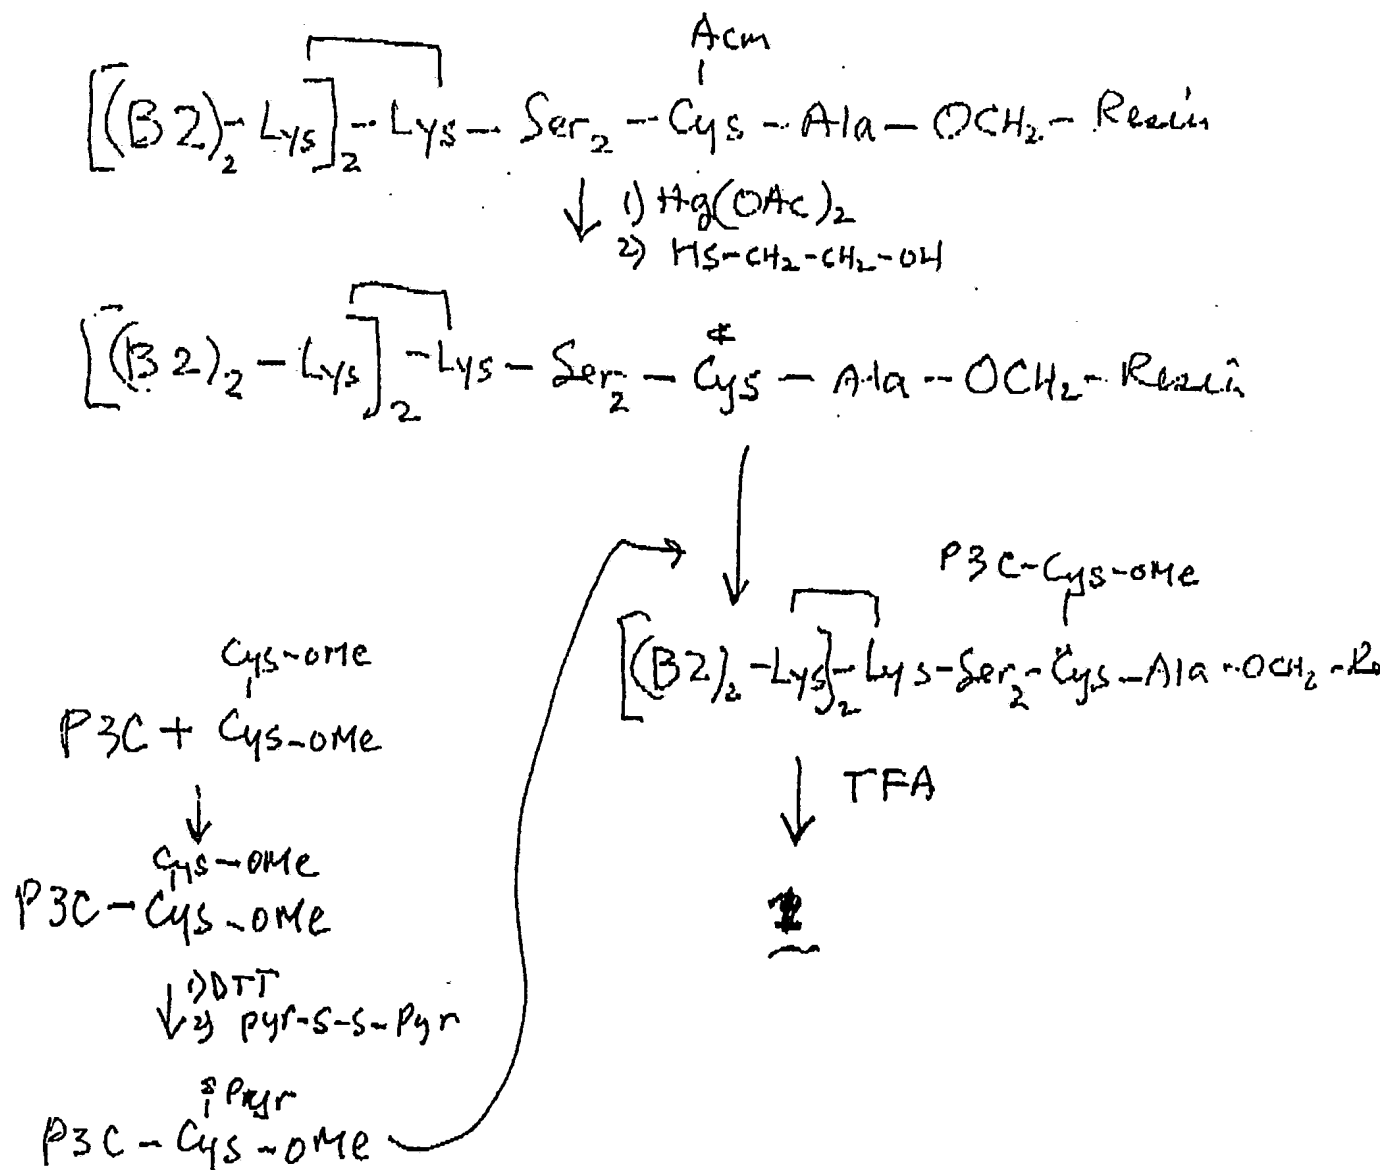 Acm
[(B2)2-Lys]2-Lys-Ser2-Cys-Ala-OCH2-Resin
1) Hg(OAc)2
2) HS-CH2-CH2-OH
[(B2)2-Lys]2-Lys-Ser2-Cys-Ala-OCH2-Resin
P3C-Cys-OMe
[(B2)2-Lys]2-Lys-Ser2-Cys-Ala-OCH2-Re
TFA
1
Cys-OMe
P3C + Cys-OMe
Cys-OMe
P3C-Cys-OMe
1) DTT
2) pyr-S-S-Pyr
S Pyr
P3C-Cys-OMe